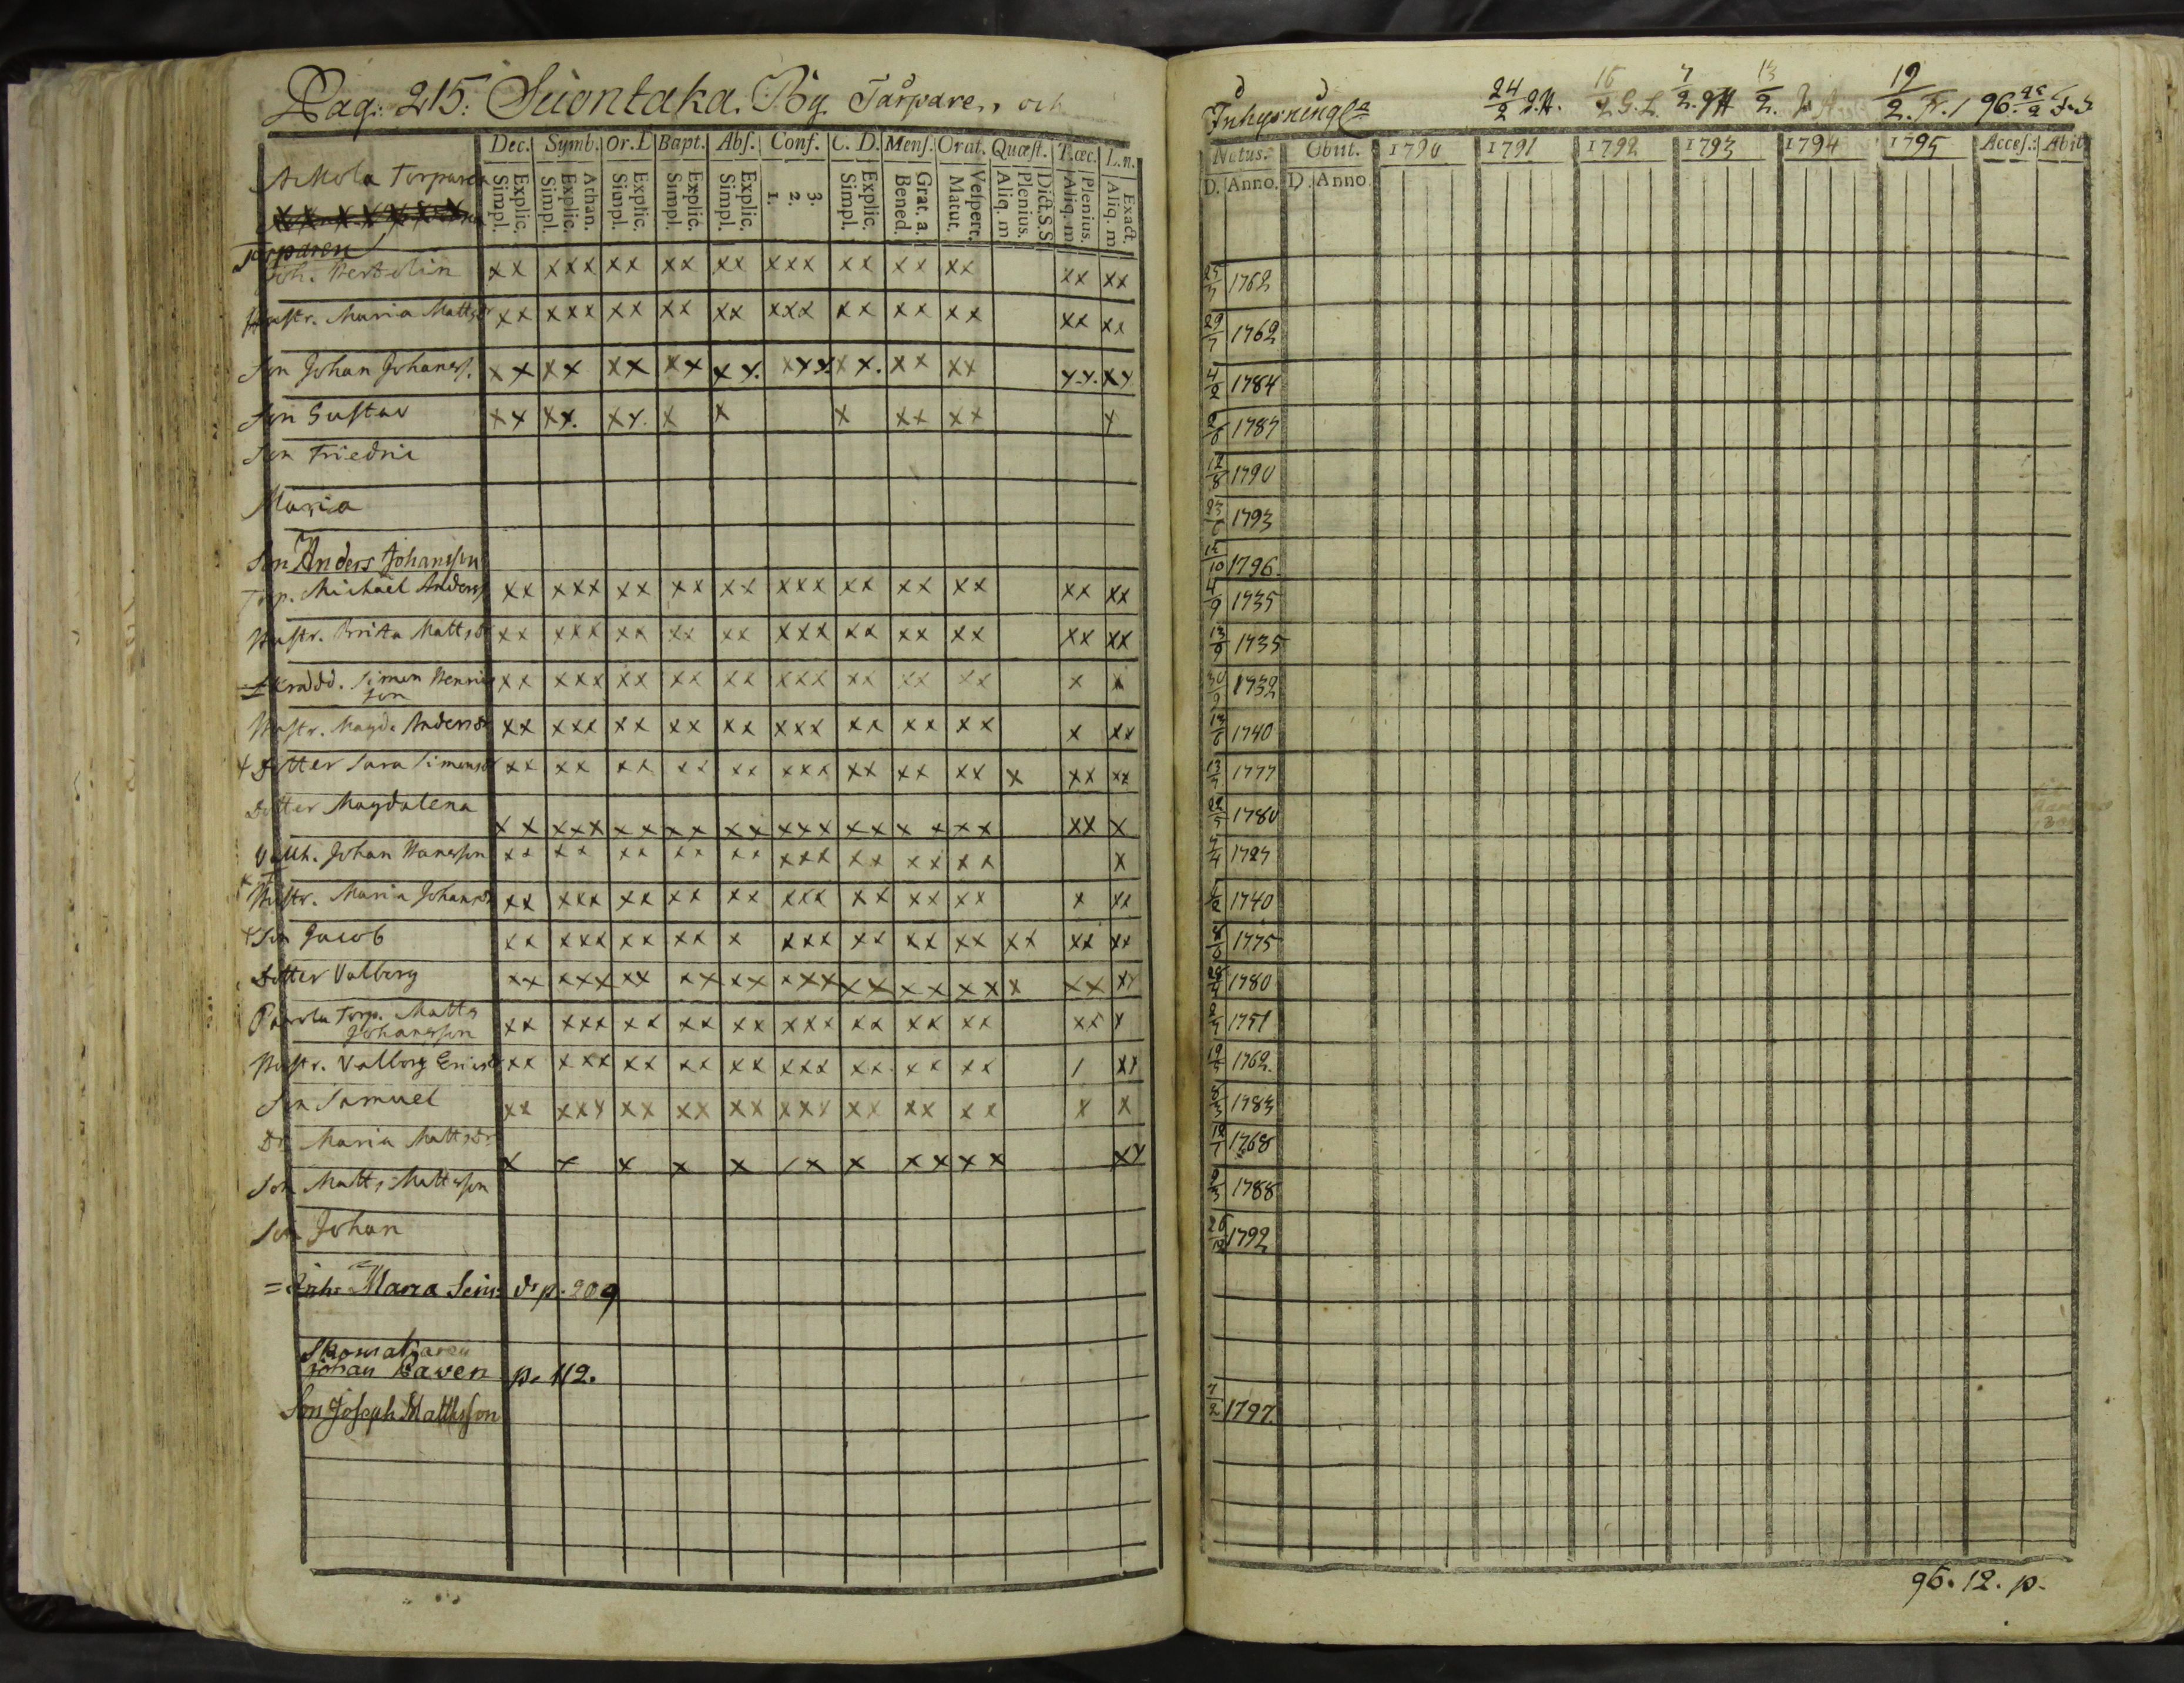 Pag: 215. Suontaka. By. Tårpare, och
Dec. Symb. Or. D Bapt. Abs. Conf. C. D. Mens. Orat. Quæst. T. œc. L. n.
Explic. Simpl. Athan. Explic. Simpl. Explic. Simpl. Explic. Simpl. Explic. Simpl. 3. 2. 1. Explic. Simpl. Grat. a. Bened. Vespert. Matut. Dict. S.S Plenius. Aliq. m Plenius. Aliq. m Exact. Aliq. m
Torpare
Torparen
Joh. Bertelin xx xxx xx xx xx xxx xx xx xx xx xx
Hustr. Maria Mattsdr xx xxx xx xx xx xxx xx xx xx xx xx
Son Johan Johanss. xx xx xx xx xx. xxx xx. xx xx x.x. xx
Son Gustav xx xx. xx. x x x xx xx x
Son Friedric
Maria
Son Anders Johansson
Torp. Michael Anderss xx xxx xx xx xx xxx xx xx xx xx xx
Hustr. Brita Mattsdr xx xxx xx xx xx xxx xx xx xx xx xx
Skrädd. Simon Henrics xx xxx xx xx xx xxx xx xx xx x x
son
Hustr. Magd. Andersdr xx xxx xx xx xx xxx xx xx xx x xx
Dotter Sara Simonsdr xx xx xx xx xx xxx xx xx xx x xx xx
Dotter Magdalena xx xxx xx xx xx xxx xx xx xx xx x
Johan Hansson xx xx xx xx xx xxx xx xx xx x
Hustr. Maria Johansdr xx xxx xx xx xx xxx xx xx xx x xx
Son Jacob xx xxx xx xx x xxx xx xx xx xx xx xx
Dotter Valborg xx xxx xx xx xx xxx xx xx xx x xx xx
Pavola Torp. Matts
Johansson xx xxx xx xx xx xxx xx xx xx xx x
Hustr. Valborg Ericsdr xx xxx xx xx xx xxx xx xx xx / xx
Son Samuel xx xxx xx xx xx xxx xx xx xx x x
Dr Maria Mattsdr x x x x x xx x xx xx xx
Son Matts Mattsson
Son Johan
= Inh. Maria Sim: dr p. 209
Skomakaren
Johan Paven p. 112.
Son Joseph Mattsson
Inhysningar
24/2 J.H. 16/2 G.L. 7/2. JH 13/2. 19/2. 96.
Natus. Obiit. 1790 1791 1792 1793 1794 1795 Acces. Abit
D. Anno. D. Anno.
1762
29/7 1762
4/2 1784
1787
12/8 1790
23/6 1793
15/10 1796.
4/9 1735
13/9 1735
30/9 1732
1740
13/7 1777
1780
7/4 1727
1740
8/6 1775
1780
1751
1762.
8/3 1783
12/7 1768
9/3 1788
26/12 1792
7/2 1797.
96. 12. p.